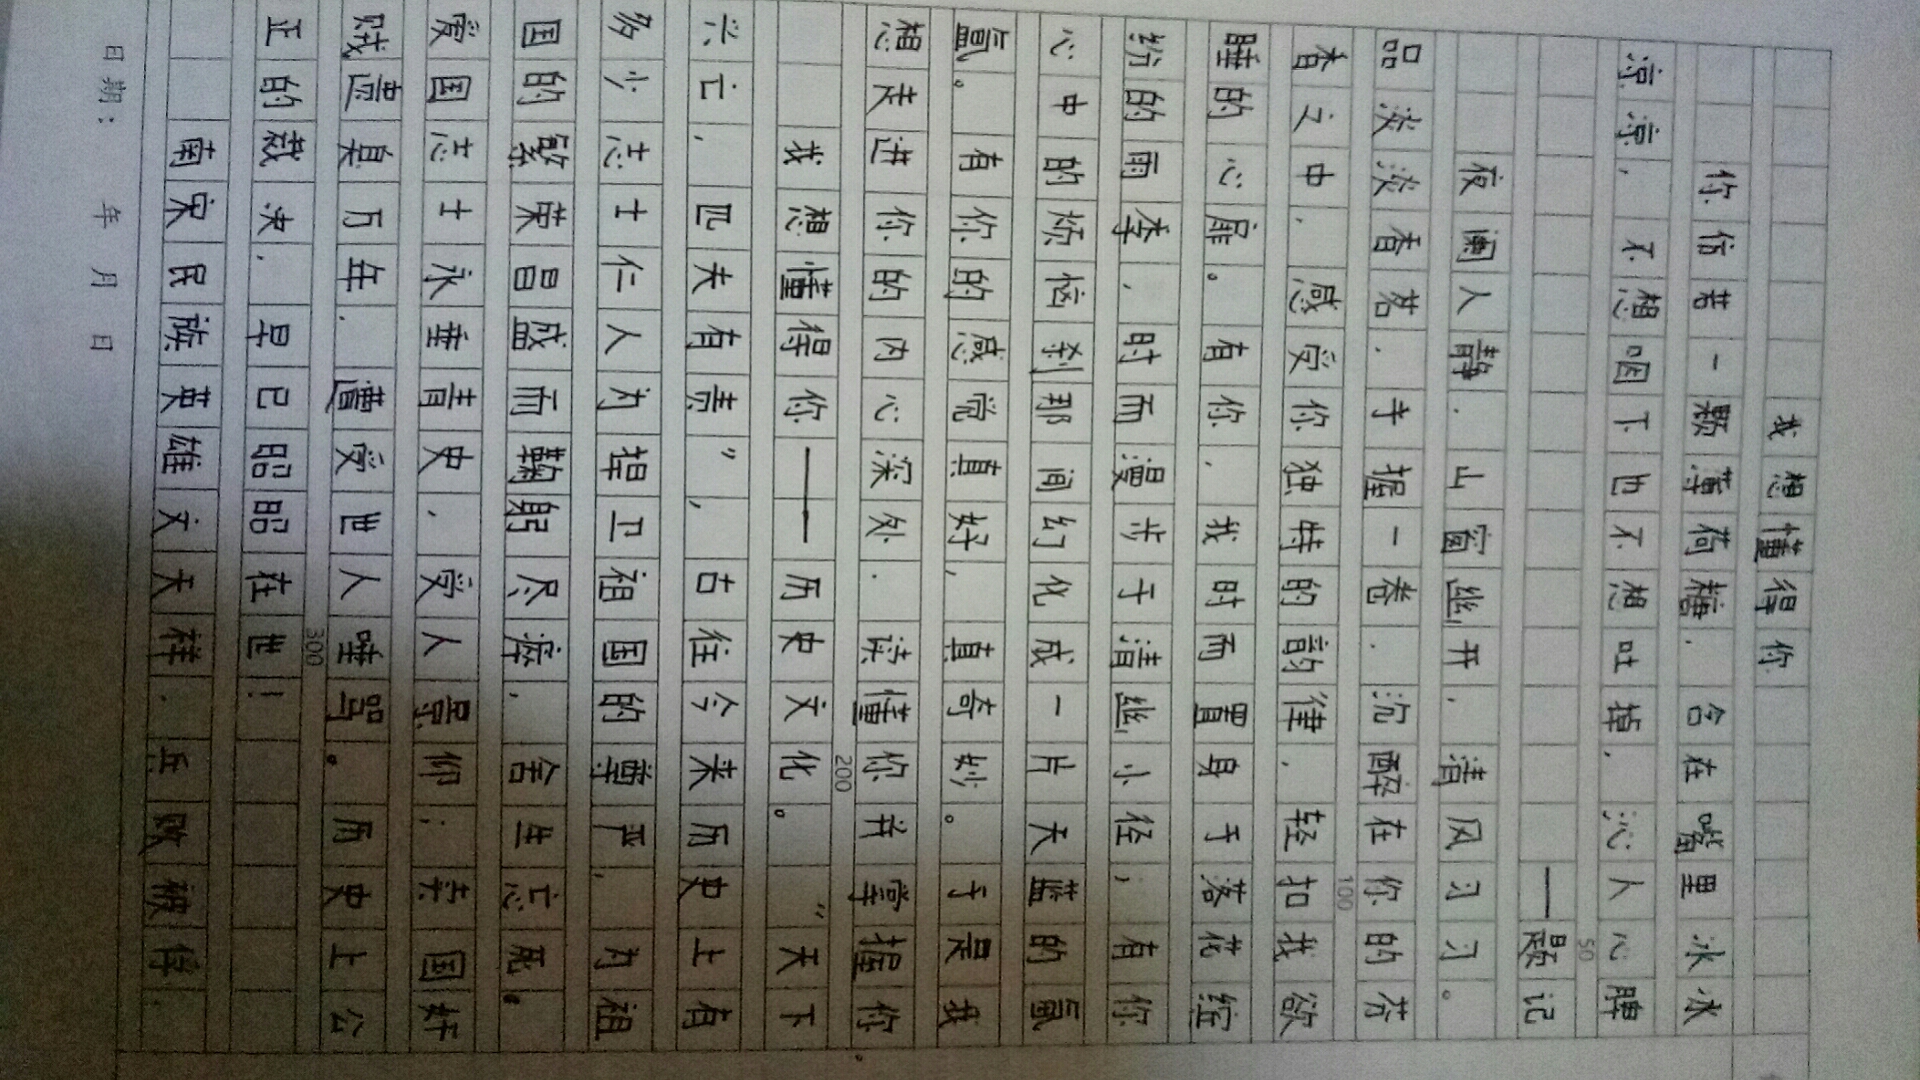 我想懂得你
你仿若一颗薄荷糖，含在嘴里冰冰
凉凉，不想咽下也不想吐掉，沁人心脾
——题记
50
夜阑人静，山窗幽开，清风习习。
品淡淡香茗，手握一卷，沉醉在你的芬
100
香之中，感受你独特的韵律，轻扣我欲
睡的心扉。有你，我时而置身于落花缤
纷的雨季，时而漫步于清幽小径，有你
心中的烦恼刹那间幻化成一片天蓝的氤
氲。有你的感觉真好，真奇妙。于是我
想走进你的内心深处，读懂你并掌握你。
200
我想懂得你——历史文化。“天下
兴亡，匹夫有责”，古往今来历史上有
多少志士仁人为捍卫祖国的尊严，为祖
国的繁荣昌盛而鞠躬尽瘁，舍生忘死。
爱国志士永垂青史，受人景仰；卖国奸
贼遗臭万年，遭受世人唾骂。历史上公
300
正的裁决，早已昭昭在世！
南宋民族英雄文天祥，兵败被俘，
日期： 年 月 日